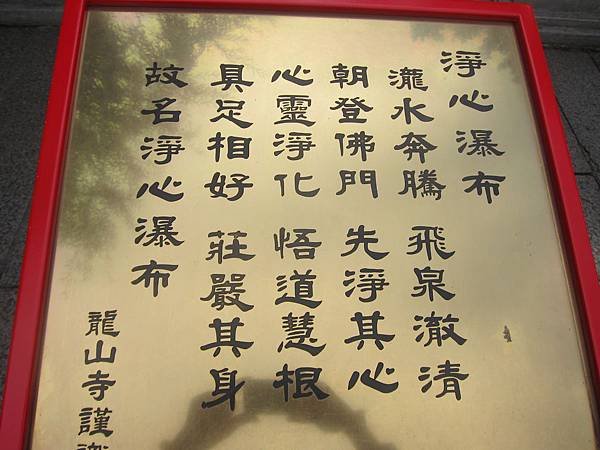 淨心瀑布
瀧水奔騰 飛泉澈清
朝登佛門 先淨其心
心靈淨化 悟道慧根
具足相好 莊嚴其身
故名淨心瀑布
龍山寺謹